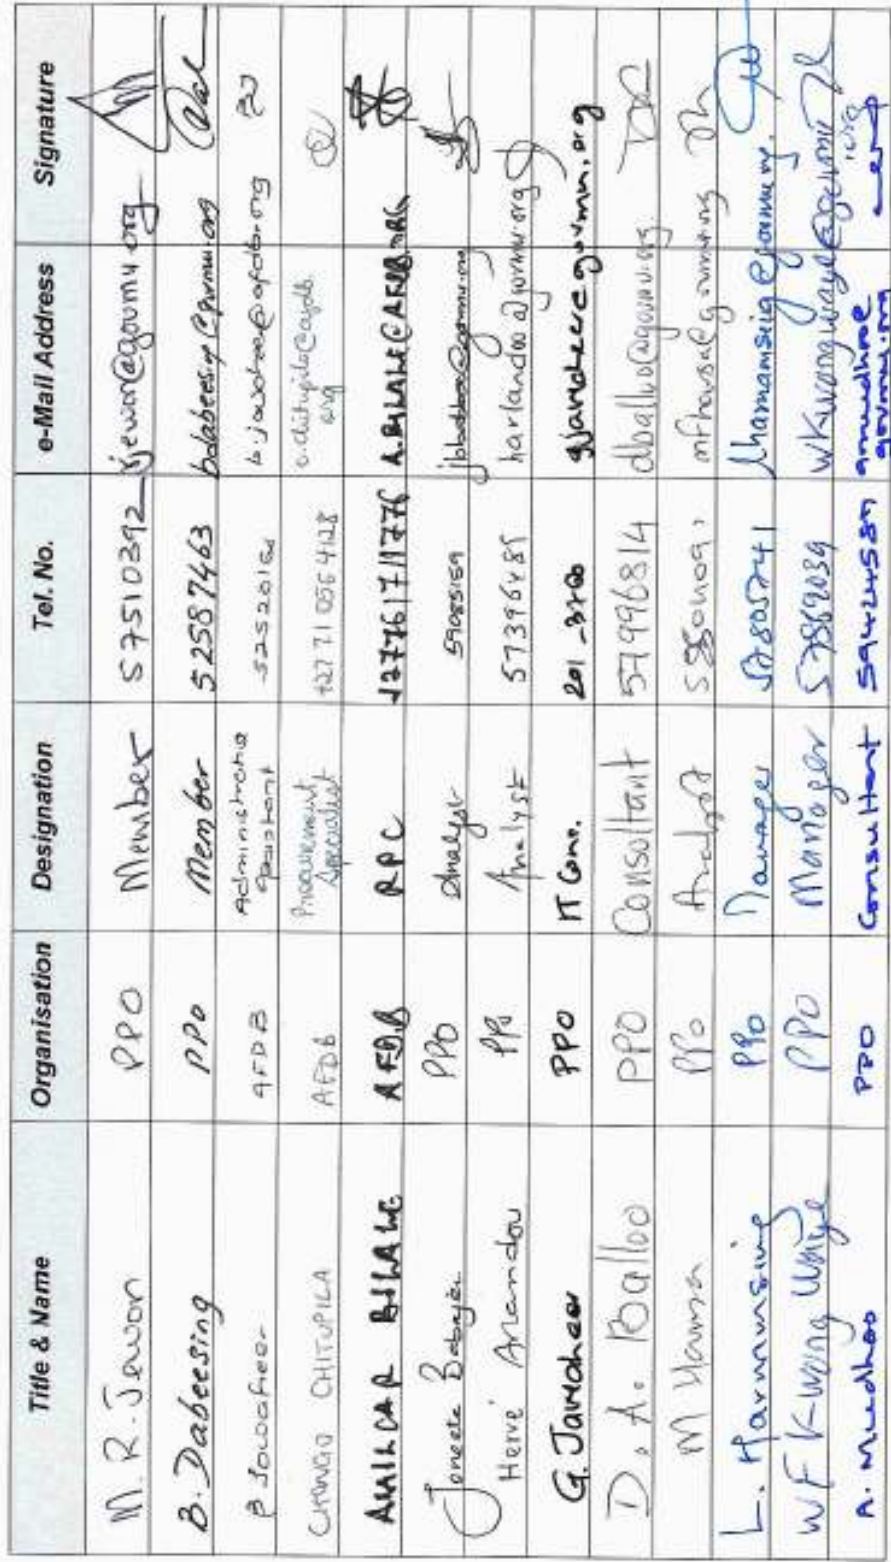 Title & Name Organisation Designation Tel. No. e-Mail Address Signature
M. R. Jewon PPO Member 57510392 rjewon@govmu.org
B. Dabeesing PPO Member 52587463 bdabeesing@govmu.org
B Jowaheer AFDB Administrative Assistant b.jowaheer@afdb.org
CHANGO CHITUPILA AFDB Procurement Specialist +27 71 056 4128 c.chitupila@afdb.org
AMILCAR BILALE AFDB RPC A.BILALE@AFDB.ORG
PPO Analyst 59085159
Hervé Arlandoo PPO Analyst 57396485 harlandoo@govmu.org
G. Jawaheer PPO IT Cons. 201 -3720 gjawaheer@govmu.org
D. A. Balloo PPO Consultant 57996814 dballoo@govmu.org
M Hansa PPO Analyst
L. Hamamsing PPO Manager 57805741 lhamamsing@govmu.org
WF Kwong Waye PPO Manager 57869039 wkwongwaye@govmu.org
A. Mudhoo PPO Consultant 59424587 amudhoo@govmu.org